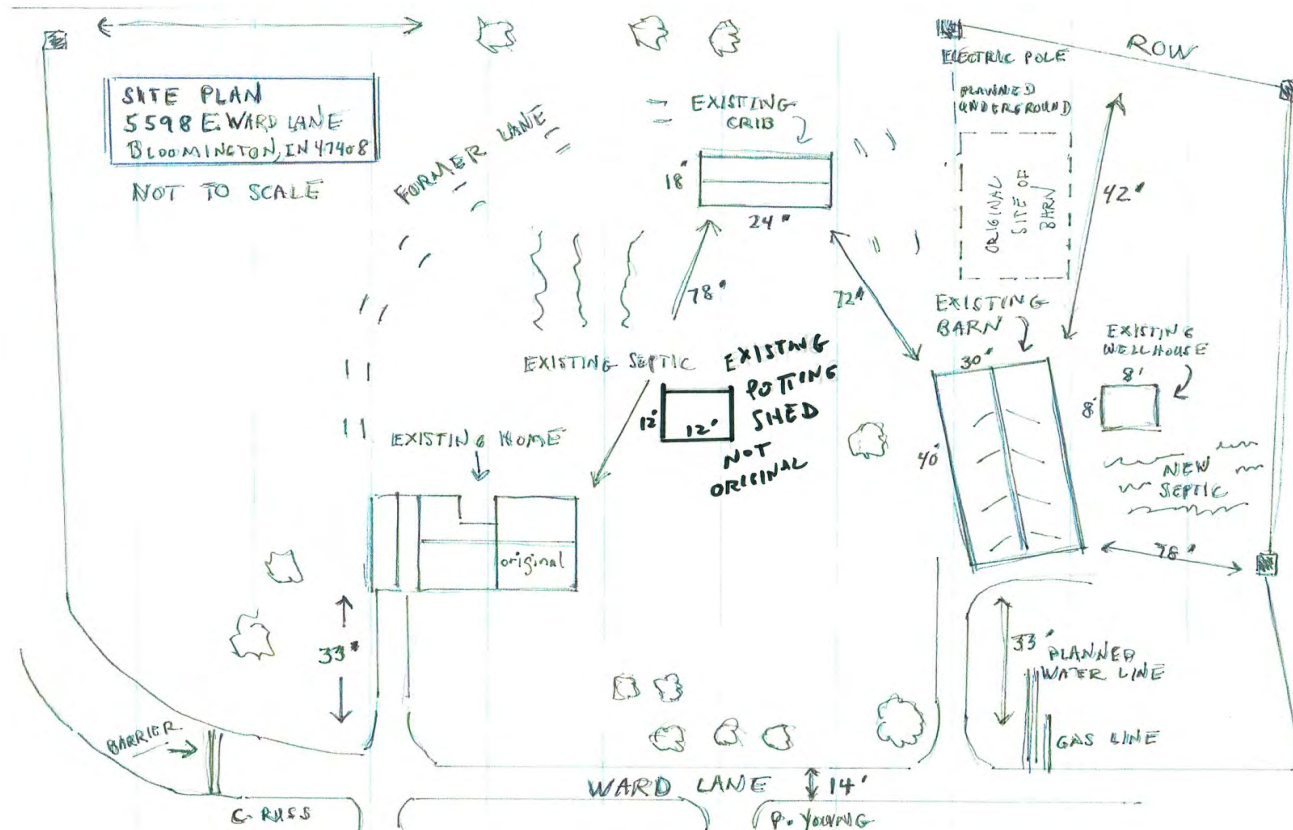 SITE PLAN
5598 E. WARD LANE
BLOOMINGTON, IN 47408
NOT TO SCALE
FORMER LANE
EXISTING
CRIB
18'
24'
ELECTRIC POLE
PLANNED
UNDERGROUND
ROW
ORIGINAL
SITE OF
BARN
42'
78'
72'
EXISTING
BARN
30'
40'
EXISTING
WELLHOUSE
8'
8'
NEW
SEPTIC
78'
EXISTING SEPTIC
EXISTING
POTTING
SHED
NOT
ORIGINAL
12'
12'
EXISTING HOME
original
33'
33'
PLANNED
WATER LINE
GAS LINE
BARRIER
WARD LANE
14'
C. RUSS
P. YOUNG